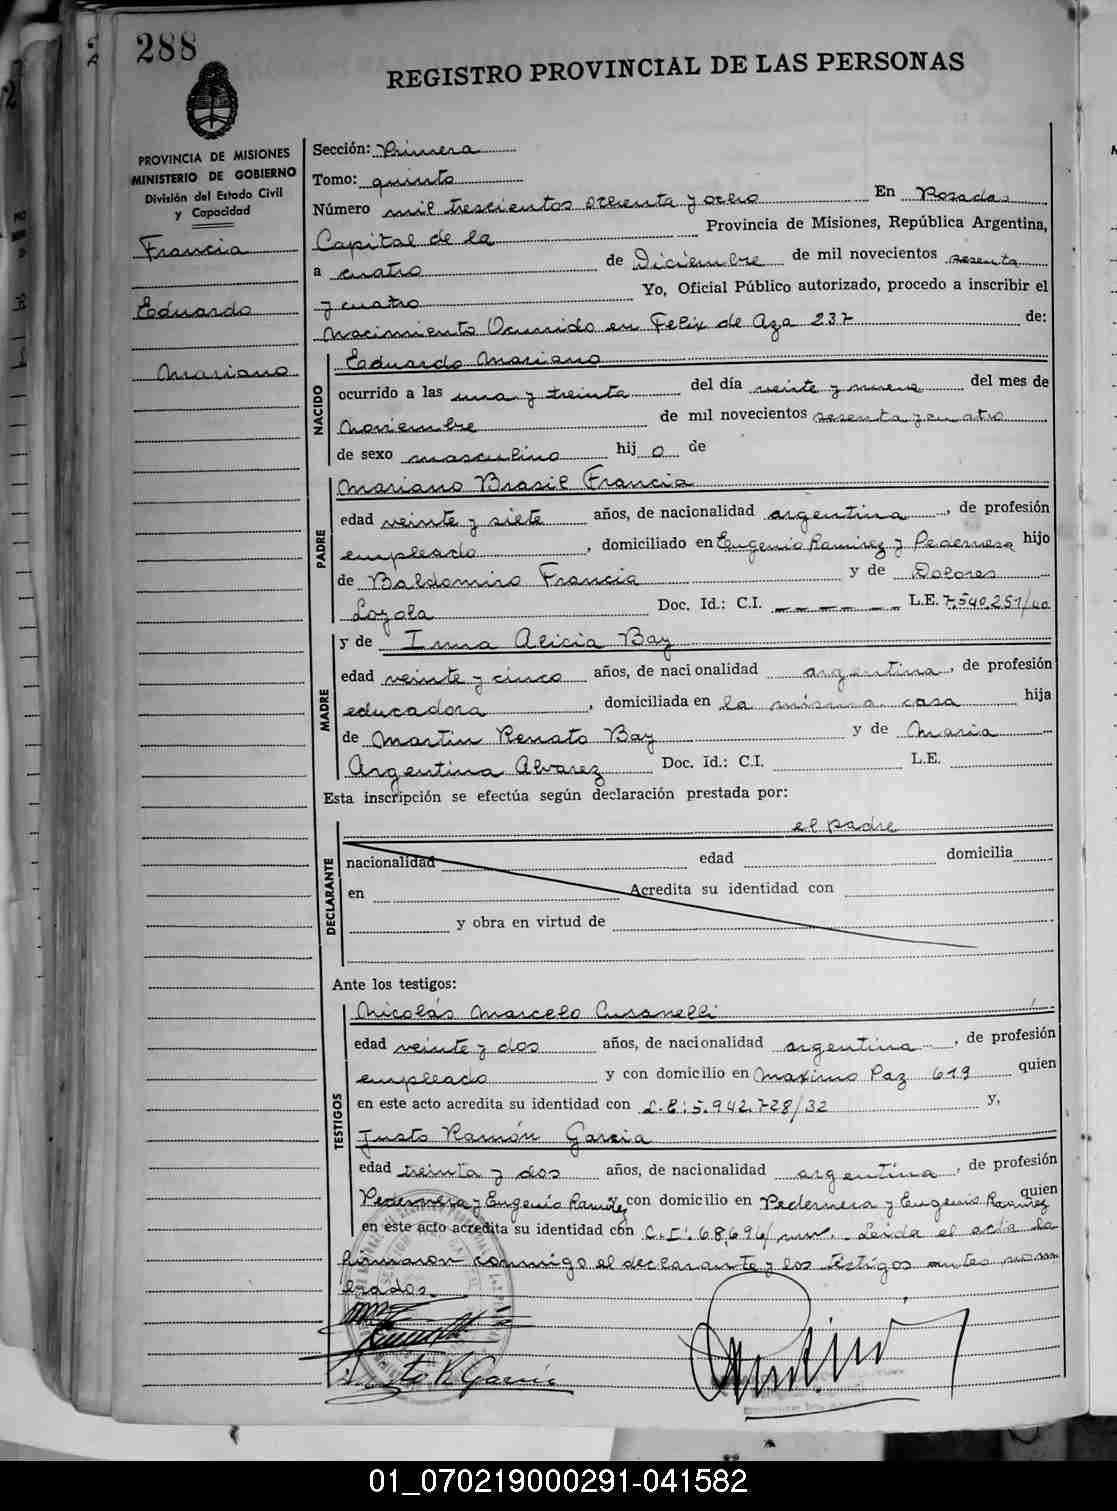 288
REGISTRO PROVINCIAL DE LAS PERSONAS
PROVINCIA DE MISIONES
MINISTERIO DE GOBIERNO
División del Estado Civil
y Capacidad
Francia
Eduardo
Mariano
Sección: Primera
Tomo: quinto
Número mil trescientos ochenta y ocho En Posadas
Capital de la Provincia de Misiones, República Argentina,
a cuatro de Diciembre de mil novecientos sesenta
y cuatro Yo, Oficial Público autorizado, procedo a inscribir el
Nacimiento Ocurrido en Felix de Aza 237 de:
NACIDO
Eduardo Mariano
ocurrido a las una y treinta del día veinte y nueve del mes de
Noviembre de mil novecientos sesenta y cuatro
de sexo masculino hij o de
PADRE
Mariano Brasil Francia
edad veinte y siete años, de nacionalidad argentina, de profesión
empleado, domiciliado en Eugenio Ramirez y Pedernera hijo
de Baldomiro Francia y de Dolores
Loyola Doc. Id.: C.I. — — — — — L.E. 7.540.251/40
MADRE
y de Irma Alicia Bay
edad veinte y cinco años, de nacionalidad argentina, de profesión
educadora, domiciliada en la misma casa hija
de Martin Renato Bay y de Maria
Argentina Alvarez Doc. Id.: C.I. L.E.
Esta inscripción se efectúa según declaración prestada por:
DECLARANTE
el padre
nacionalidad edad domicilia
en Acredita su identidad con
y obra en virtud de
Ante los testigos:
TESTIGOS
Nicolás Marcelo Cusanelli
edad veinte y dos años, de nacionalidad argentina, de profesión
empleado y con domicilio en Maximo Paz 619 quien
en este acto acredita su identidad con L.E: 5.942.728/32 y,
Justo Ramón Garcia
edad treinta y dos años, de nacionalidad argentina, de profesión
Pedernera y Eugenio Ramirez con domicilio en Pedernera y Eugenio Ramirez quien
en este acto acredita su identidad con C.I: 68.696/ Leida el acta la
firmaron conmigo el declarante y los testigos antes nom
brados.
Justo R Garcia
01_070219000291-041582